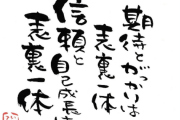 期待とがっかりは
表裏一体
信頼と自己成長は
表裏一体